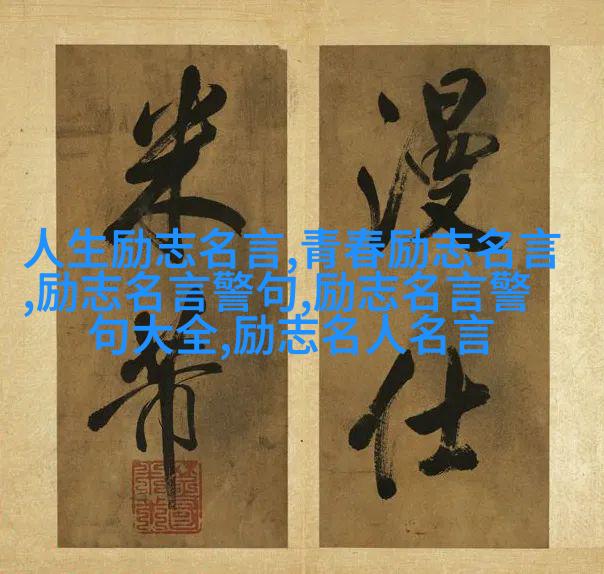 漫仕
米芾
人生励志名言,青春励志名言
,励志名言警句,励志名言警
句大全,励志名人名言